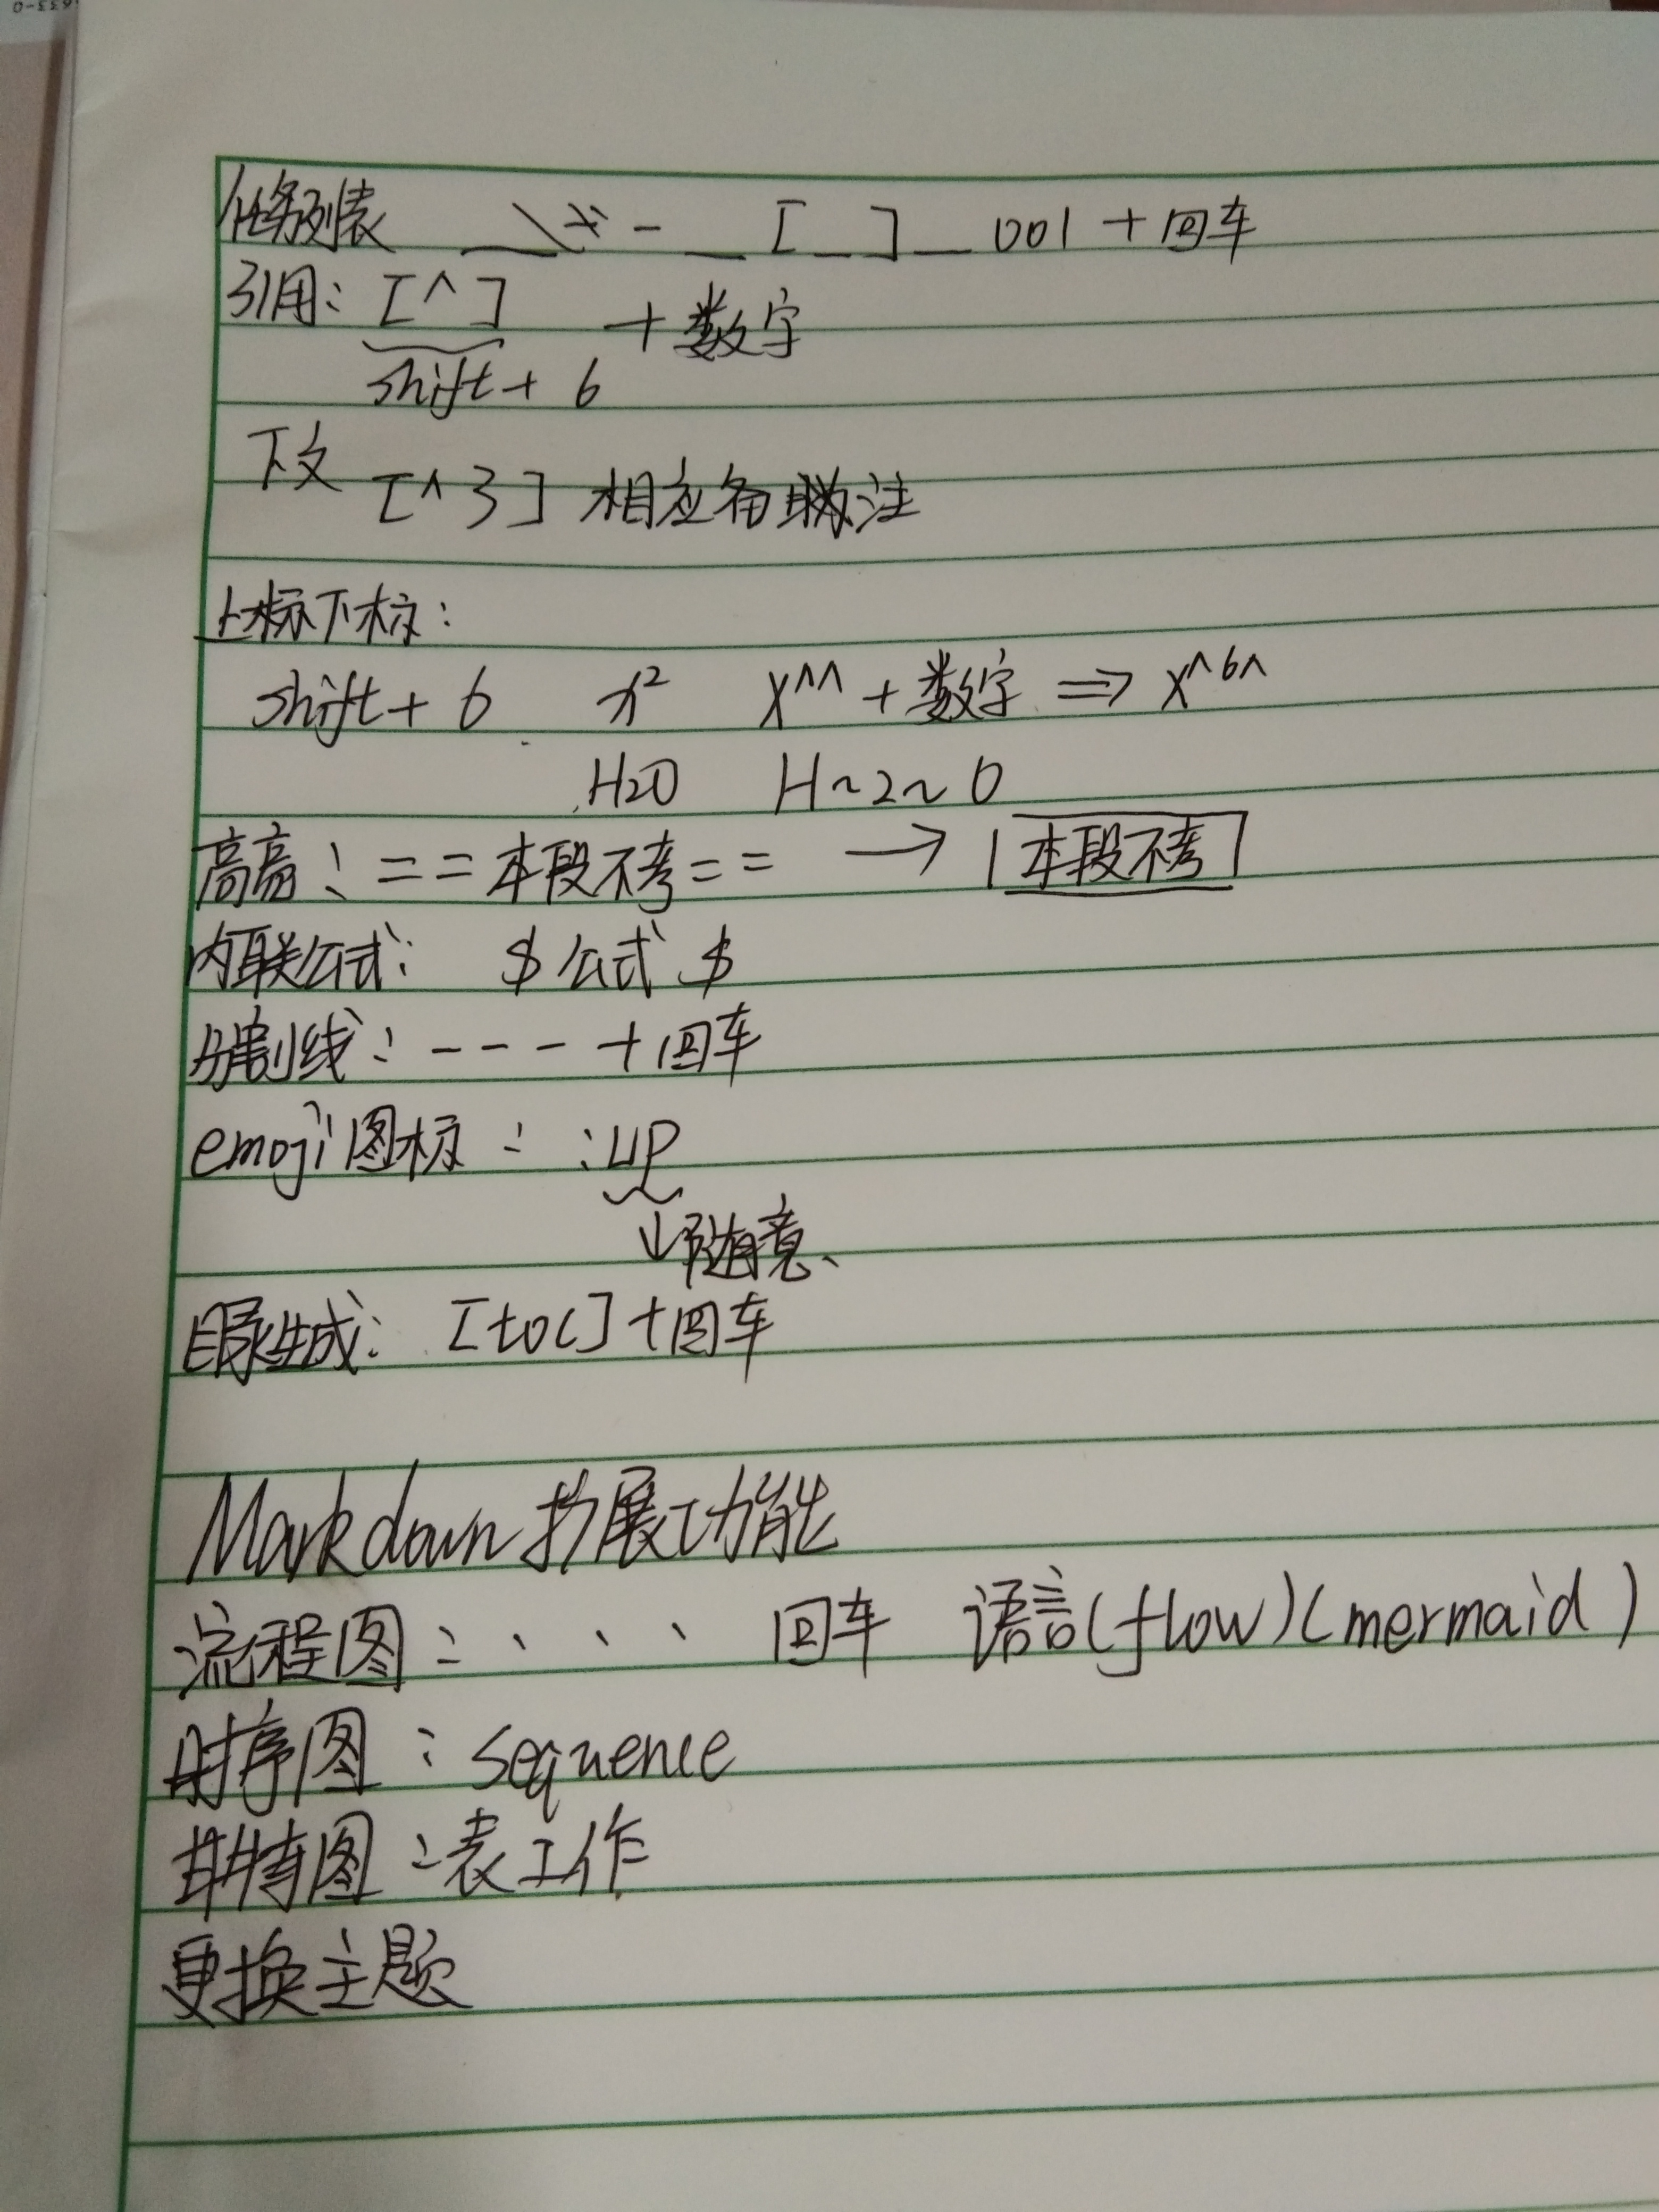 任务列表 - _ [_] _ 001 + 回车
引用: [^] + 数字
shift + 6
下文 [^3] 相应备注
上标下标:
shift + 6 x² X^^ + 数字 => X^6^
H2O H~2~O
高亮: ==本段不考== → 本段不考
内联公式: $公式$
分割线: --- + 回车
emoji图标: :up
↓随意、
目录生成: [toc] + 回车
Markdown 扩展功能
流程图: 、、、 回车 语言(flow)(mermaid)
时序图: sequence
甘特图: 表工作
更换主题